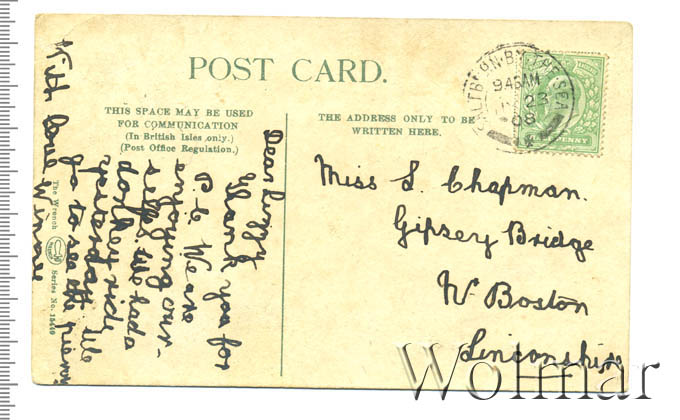 POST CARD.
THIS SPACE MAY BE USED
FOR COMMUNICATION
(In British Isles only.)
(Post Office Regulation.)
THE ADDRESS ONLY TO BE
WRITTEN HERE.
BY THE SEA
9 45AM
23
08
PENNY
Dear Lizzy
Thank you for
P.C. We are
enjoying our-
selfs. We had a
donkey ride
yesterday. We
go to see the pierr
With love
Miss L. Chapman.
Gipsey Bridge
Nr Boston
Linconshire
The Wrench Series No. 15449
Wolmar